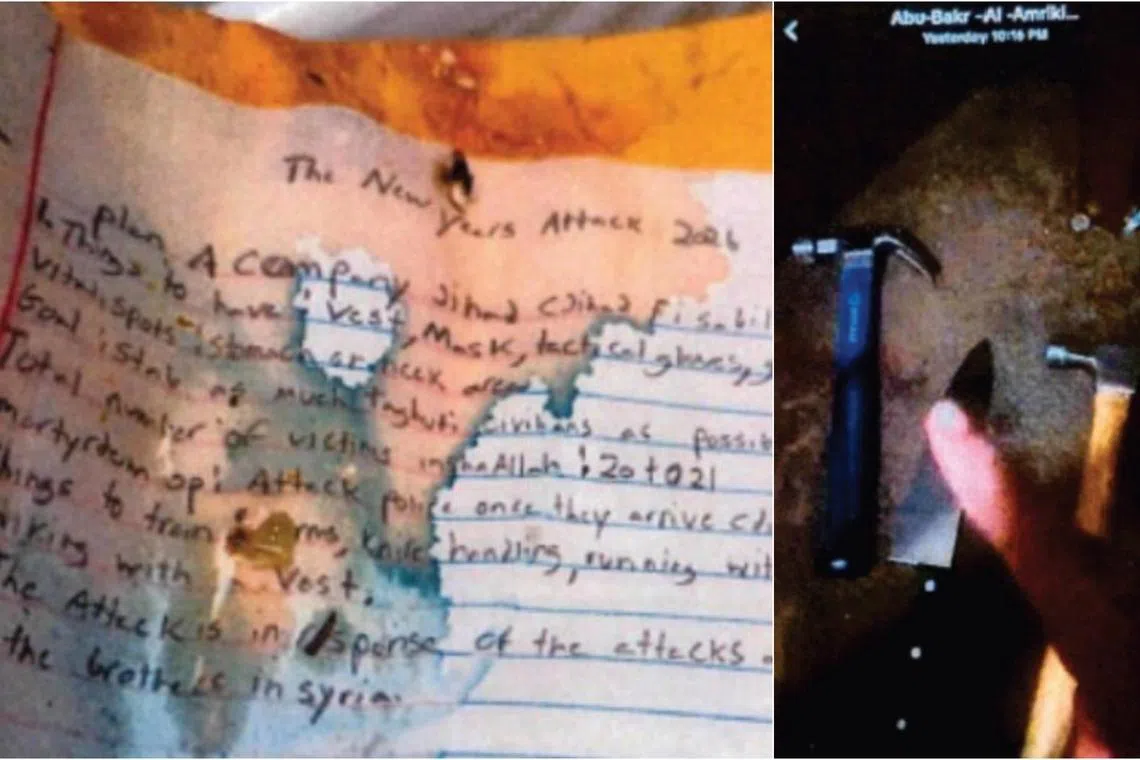 The New Years Attack 2026
plan A Company Jihad CJihad Fisabil
1. Things to have : Vest, Mask, tactical gloves,
Vital spots : stomach or neck area
Goal : stab as much Taghuti civilians as possib
Total number of victims inshaAllah : 20 to 21
martyrdom op: Attack police once they arrive
things to train : rms, knife handling, running wit
with Vest.
The Attack is in sponse of the attacks
the brothers in Syria.
Abu-Bakr -Al -Amriki...
Yesterday 10:16 PM